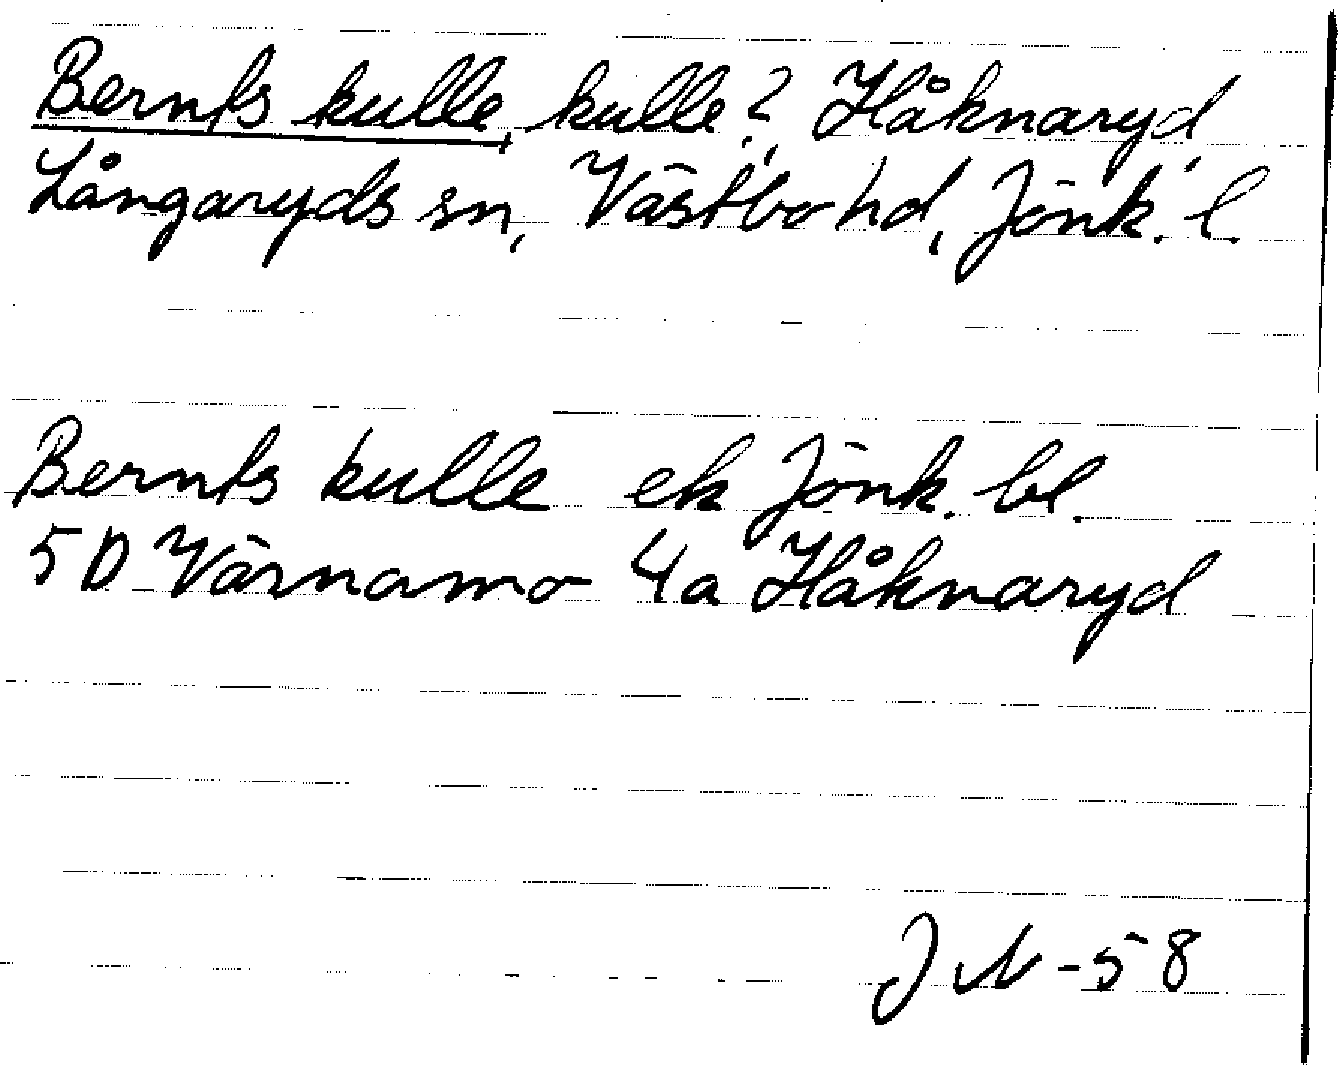 Bernts kulle, kulle?, Håknaryd,
Långaryds sn, Västbo hd, Jönk. l.
Bernts kulle ek Jönk. bl.
5D Värnamo 4a Håknaryd
JN-58